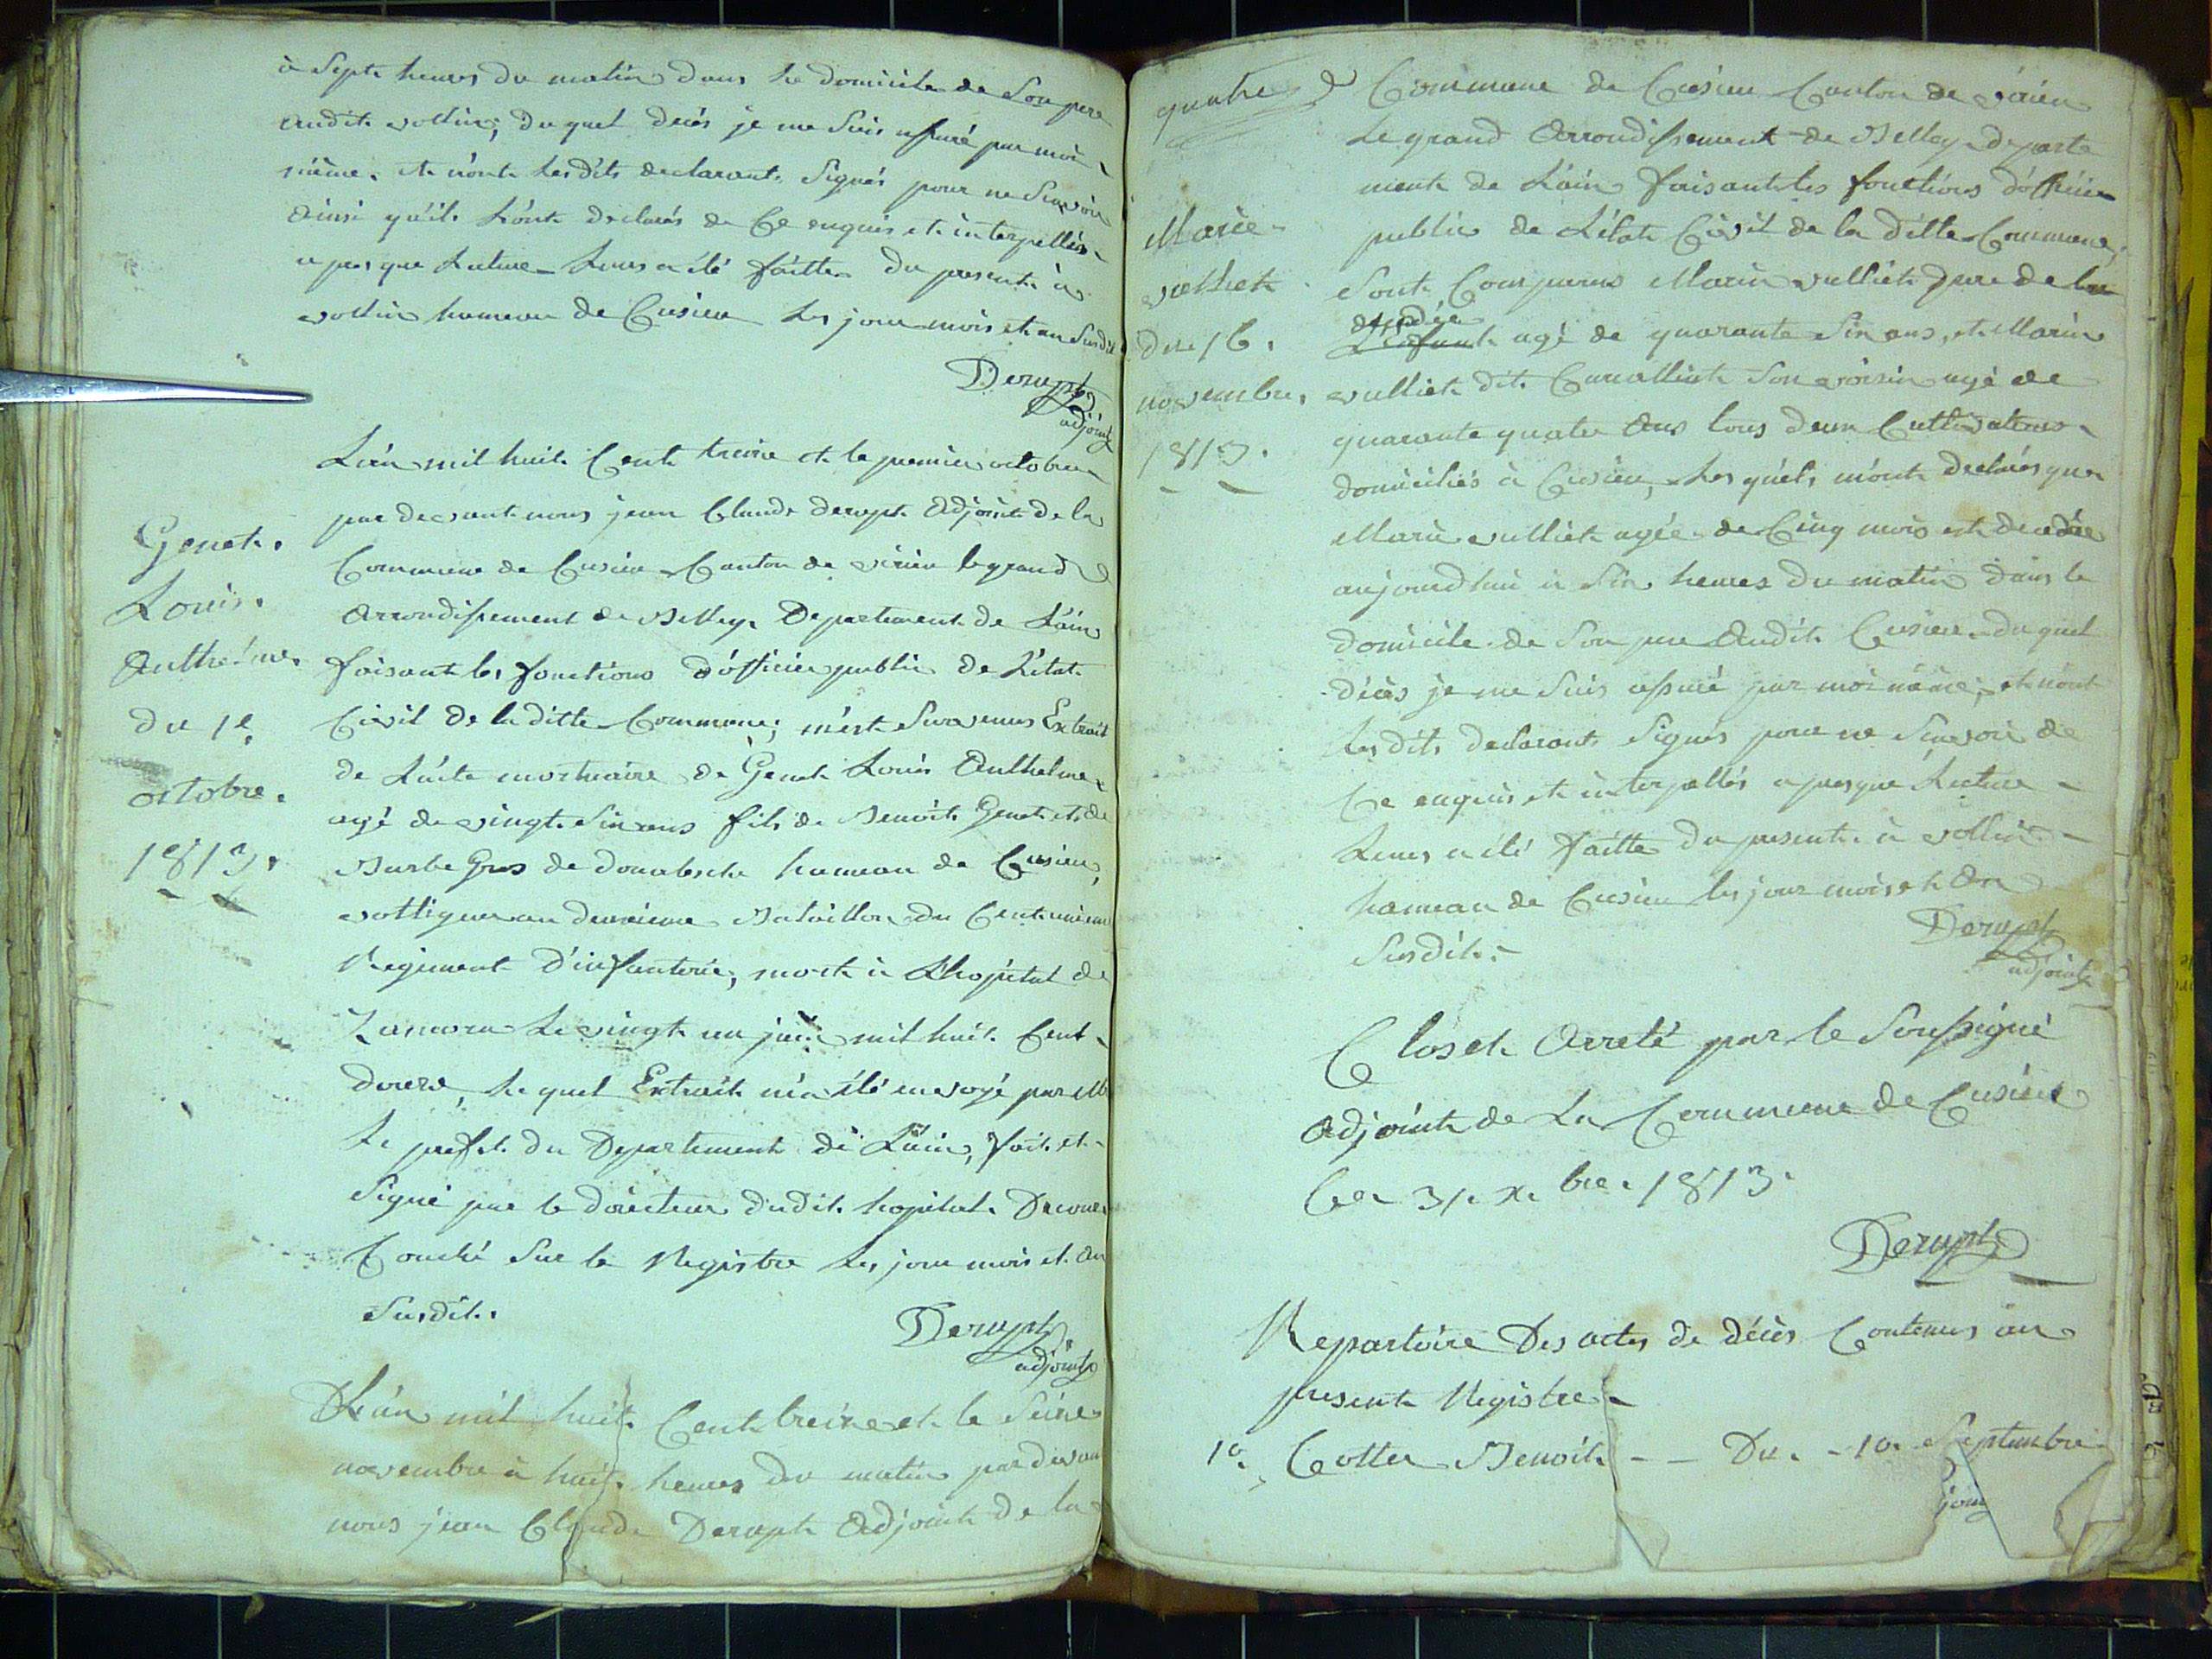 à Septe heures du matin dans le domicile de Son pere
audite vollin; du quel decés je me Suis assuré par moi
même. et n'onte lesdits declarants Signés pour ne Scavoir
ainsi qu'ils L'onte declarés de Ce enquis et interpellés
apres que Lecture Leurs a été faitte du presente à
vollin hameau de Cusieu Les jour mois et an Susdit
Derupt
adjoint
Genet.
Louis.
Anthelme.
du 1e.
octobre.
1813.
L'an mil huit Cent treize et le premier octobre
par devant nous jean Claude derupt Adjointe de la
Commune de Cusieu Canton de virieu le grand
Arrondissement de Belley Departement de L'ain
faisant les fonctions d'officier public de L'état
Civil de la ditte Commune; m'est Survenus Extrait
de L'acte mortuaire de Genet Louis Anthelme
agé de vingt Six ans fils de Benoit Genet et de
Gros de hameau de Cusieu,
voltigeur au deuxieme Bataillon du Centunieme
Regiment D'infanterie, mort à L'hopital de
Zamora Le vingt un juin mil huit Cent
douze, le quel Extrait m'a été envoyé par Mr
Le prefet du Departement de L'ain, fait et
Signé par le directeur dudit hopital.
Couché Sur le Registre Les jour mois et an
Susdit.
Derupt
adjoint
L'an mil huit Cent treize et le Seize
novembre à huit heures du matin par devant
nous jean Claude Derupt Adjoint de la
quatre
Marie
vulliet
du 16.
novembre.
1813.
Commune de Cusieu Canton de virieu
Le grand Arrondissement de Belley departe
ment de L'ain faisant les fonctions d'officier
public de L'état Civil de la ditte Commune,
Sont Comparus Marin vulliet pere de la
decedée
L'Enfant agé de quarante Six ans, et Marin
vulliet dit Son voisin agé de
quarante quatre ans tous deux Cultivateurs
domiciliés à Cusieu, Les quels m'ont declarés que
Marie vulliet agée de Cinq mois est decedée
aujourd'hui à Six heures du matin dans le
domicile de Son pere Audit Cusieu du quel
décès je me Suis assuré par moi même; et n'ont
Les dits declarants Signés pour ne Scavoir de
Ce enquis et interpellés apres que Lecture
Leurs a été faitte du present à vollin
hameau de Cusieu les jour mois et An
Susdit.
Derupt
adjoint
Clos et Arreté par le Soussigné
Adjoint de La Commune de Cusieu
Ce 31. x.bre. 1813.
Derupt
Repartoire Des actes de décès Contenus au
present Registre
1o. Cottex Benoit - - Du. - 10. Septembre